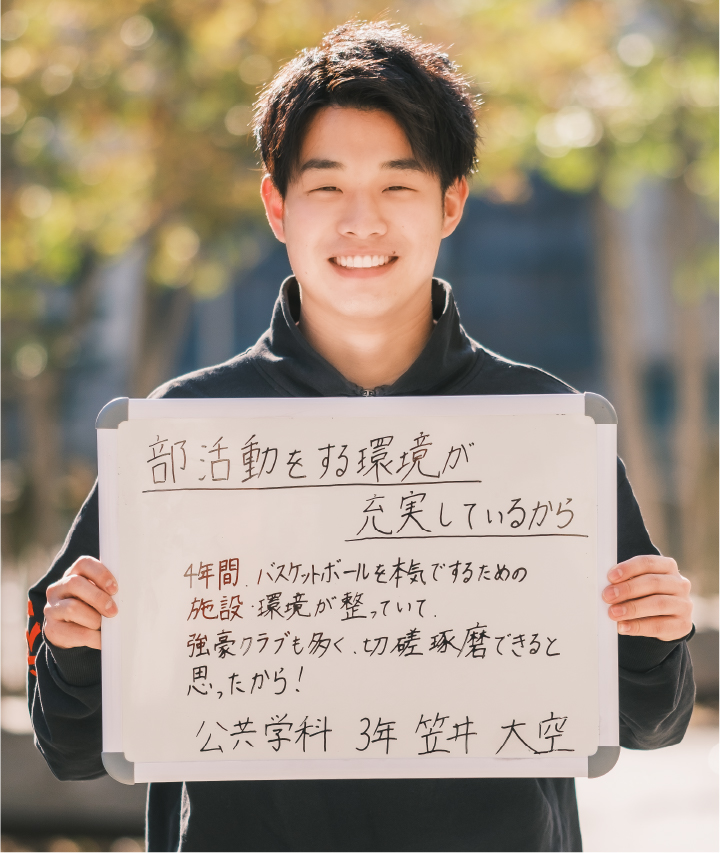 部活動をする環境が
充実しているから
4年間、バスケットボールを本気でするための
施設・環境が整っていて、
強豪クラブも多く、切磋琢磨できると
思ったから!
公共学科 3年 笠井 大空